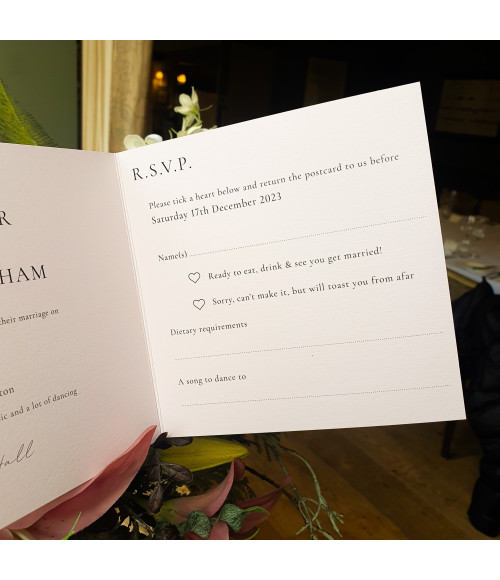 R
HAM
their marriage on
ton
ic and a lot of dancing
Hall
R.S.V.P.
Please tick a heart below and return the postcard to us before
Saturday 17th December 2023
Name(s)
Ready to eat, drink & see you get married!
Sorry, can't make it, but will toast you from afar
Dietary requirements
A song to dance to